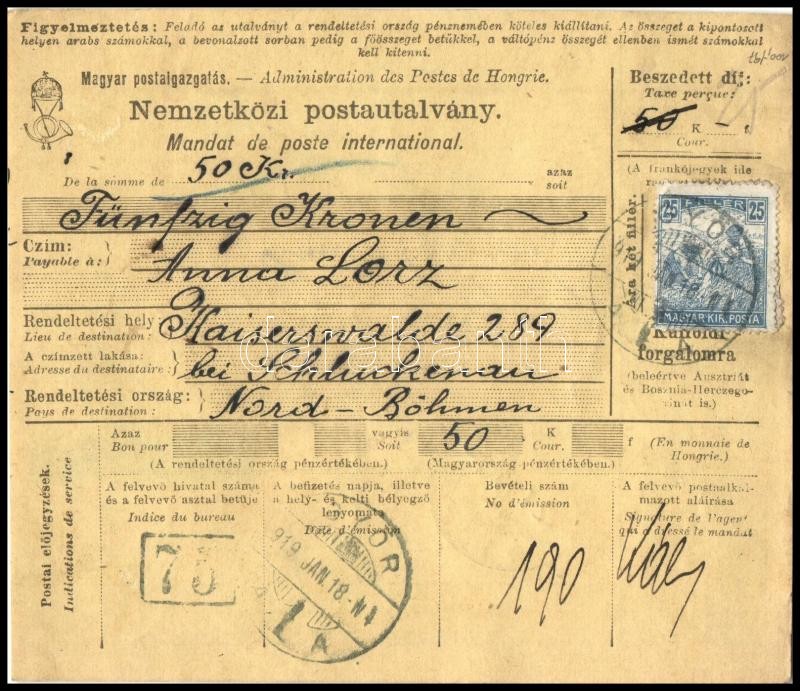 Figyelmeztetés: Feladó az utalványt a rendeltetési ország pénznemében köteles kiállítani. Az összeget a kipontozott
helyen arabs számokkal, a bevonalzott sorban pedig a főösszeget betükkel, a váltópénz összegét ellenben ismét számokkal
kell kitenni.
Magyar postaigazgatás. — Administration des Postes de Hongrie.
Nemzetközi postautalvány.
Mandat de poste international.
De la somme de 50 Kr. azaz
soit
Fünfzig Kronen
Czím:
Payable à:
Anna Lorz
Rendeltetési hely
Lieu de destination:
Kaiserswalde 289
A czímzett lakása:
Adresse du destinataire:
bei Schluckenau
Rendeltetési ország:
Pays de destination:
Nord-Böhmen
Beszedett díj:
Taxe perçue:
50 K — f
Cour.
(A frankójegyek ide
Ára két fillér.
25 FILLÉR 25
MAGYAR KIR. POSTA
Külföldi
forgalomra
(beleértve Ausztriát
és Bosznia-Herczego-
vinát is.)
Azaz
Bon pour
vagyis
Soit
50 K
Cour.
f (En monnaie de
Hongrie.)
(A rendeltetési ország pénzértékében.) (Magyarország pénzértékében.)
Postai előjegyzések.
Indications de service
A felvevő hivatal száma
és a felvevő asztal betüje
Indice du bureau
75
A befizetés napja, illetve
a hely- és kelti bélyegző
lenyomata
Date d'émission
GYŐR
919 JAN. 18.-N4
Bevételi szám
No d'émission
190
A felvevő postaalkal-
mazott aláírása
Signature de l'agent
qui a dressé le mandat
darabanth